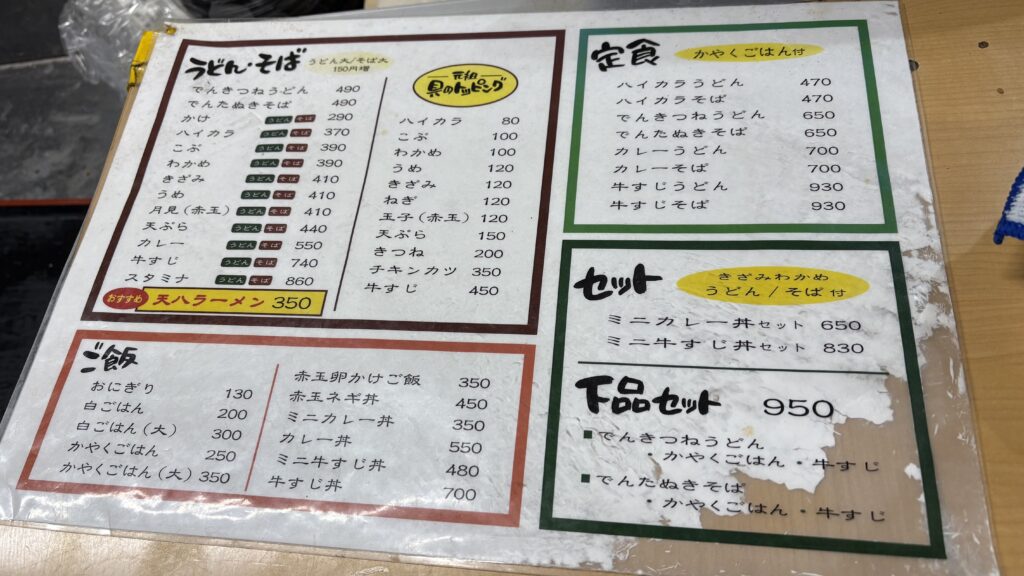 うどん・そば
うどん大/そば大
150円増
でんきつねうどん 490
でんたぬきそば 490
かけ うどん そば 290
ハイカラ うどん そば 370
こぶ うどん そば 390
わかめ うどん そば 390
きざみ うどん そば 410
うめ うどん そば 410
月見(赤玉) うどん そば 410
天ぷら うどん そば 440
カレー うどん そば 550
牛すじ うどん そば 740
スタミナ うどん そば 860
おすすめ 天八ラーメン 350
元祖
具のトッピング
ハイカラ 80
こぶ 100
わかめ 100
うめ 120
きざみ 120
ねぎ 120
玉子(赤玉) 120
天ぷら 150
きつね 200
チキンカツ 350
牛すじ 450
ご飯
おにぎり 130
白ごはん 200
白ごはん(大) 300
かやくごはん 250
かやくごはん(大) 350
赤玉卵かけご飯 350
赤玉ネギ丼 450
ミニカレー丼 350
カレー丼 550
ミニ牛すじ丼 480
牛すじ丼 700
定食 かやくごはん付
ハイカラうどん 470
ハイカラそば 470
でんきつねうどん 650
でんたぬきそば 650
カレーうどん 700
カレーそば 700
牛すじうどん 930
牛すじそば 930
セット
きざみわかめ
うどん/そば付
ミニカレー丼セット 650
ミニ牛すじ丼セット 830
下品セット 950
■でんきつねうどん
・かやくごはん・牛すじ
■でんたぬきそば
・かやくごはん・牛すじ